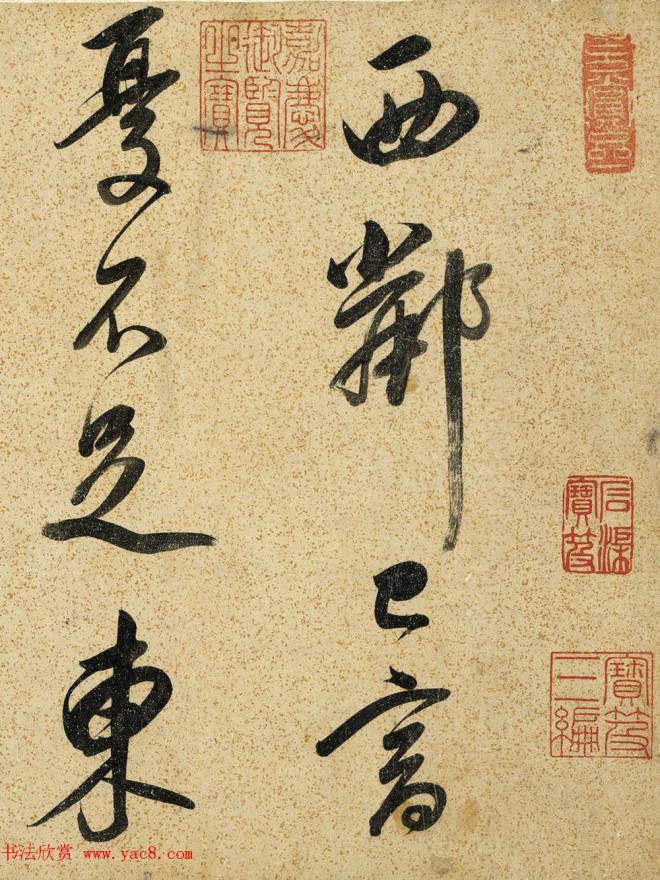 石渠寶笈
寶笈三編
西鄰已富
嘉慶御覽之寶
憂不足東
书法欣赏 www.yac8.com